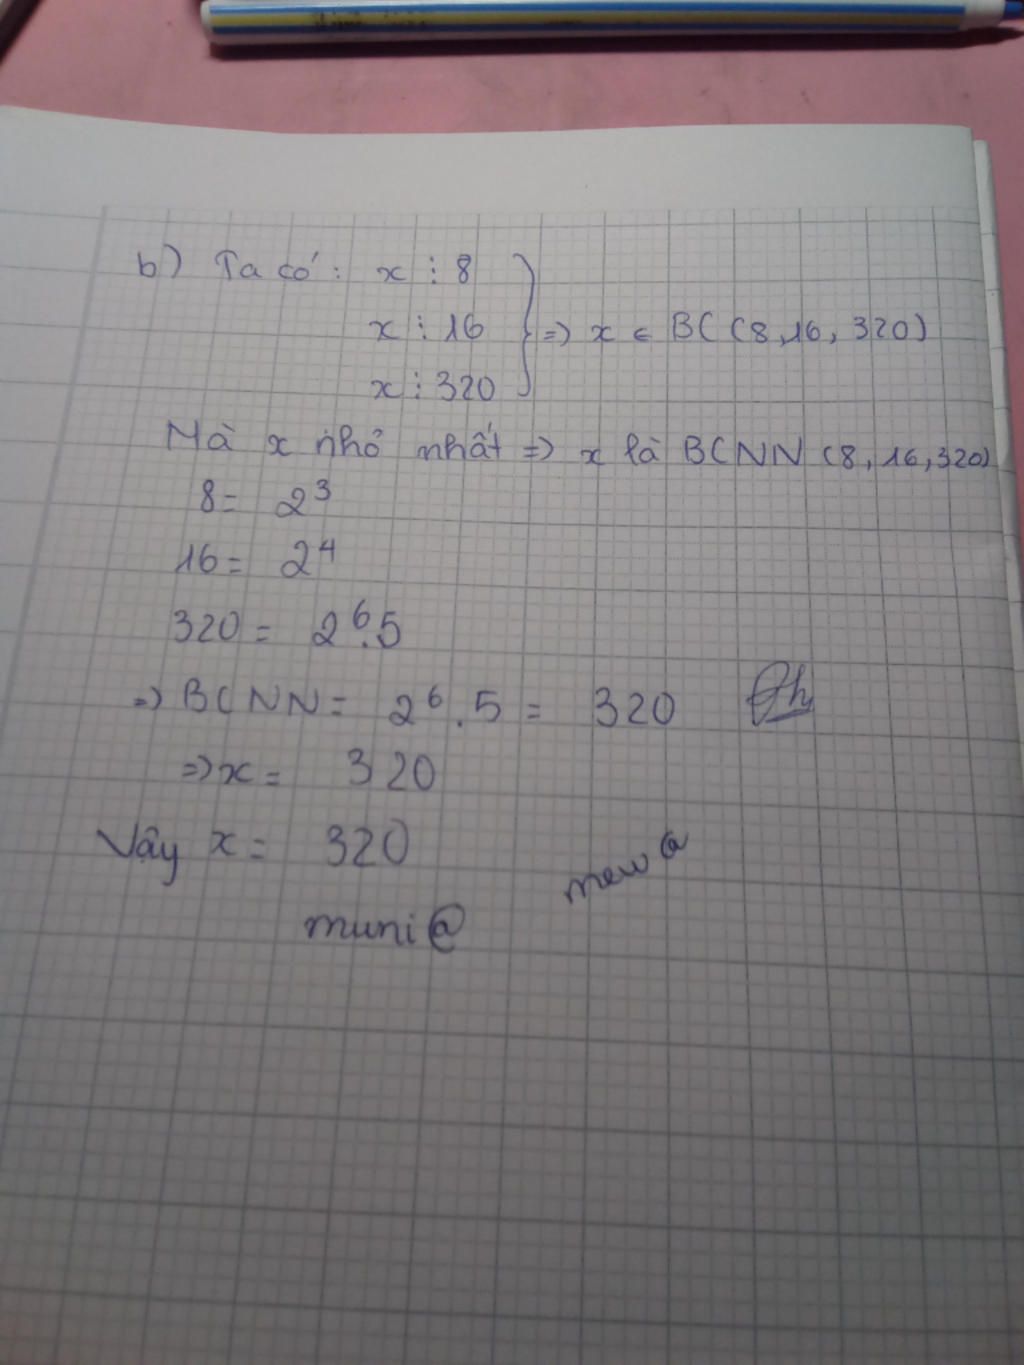 b) Ta có: x ⋮ 8
x ⋮ 16 => x ∈ BC (8,16, 320)
x ⋮ 320
Mà x nhỏ nhất => x là BCNN (8, 16, 320)
8 = 2³
16 = 2⁴
320 = 2⁶.5
=> BCNN = 2⁶ . 5 = 320
=> x = 320
Vậy x = 320
mew @
muni @